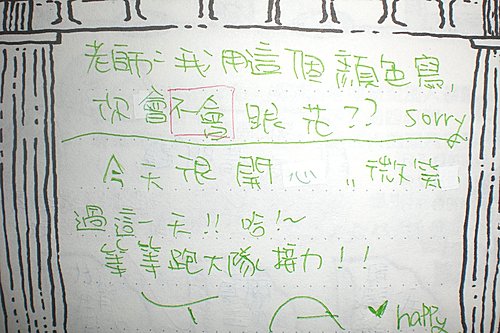 老師:我用這個顏色寫,
你會不會眼花?? sorry
今天很開心,微笑
過這一天!! 哈!~
等等跑大隊接力!!
happy